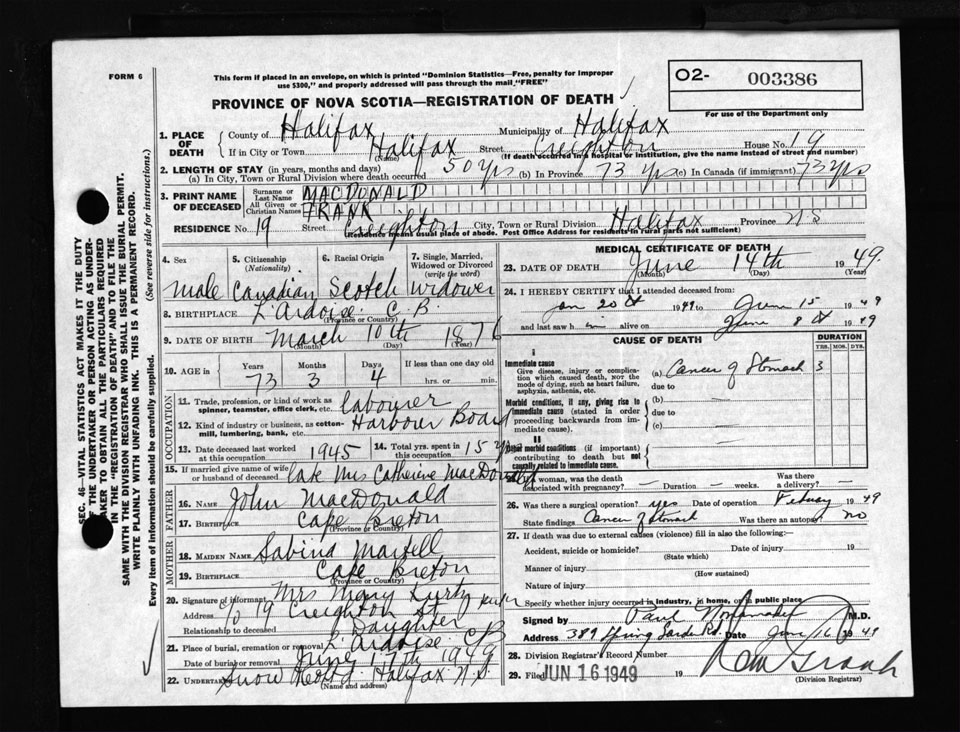 FORM 6
This form if placed in an envelope, on which is printed "Dominion Statistics—Free, penalty for improper
use $300," and properly addressed will pass through the mail "FREE"
O2- 003386
For use of the Department only
PROVINCE OF NOVA SCOTIA—REGISTRATION OF DEATH
SEC. 46—VITAL STATISTICS ACT MAKES IT THE DUTY
OF THE UNDERTAKER OR PERSON ACTING AS UNDER-
TAKER TO OBTAIN ALL THE PARTICULARS REQUIRED
IN THE "REGISTRATION OF DEATH" AND TO FILE THE
SAME WITH THE DIVISION REGISTRAR WHO SHALL ISSUE THE BURIAL PERMIT.
WRITE PLAINLY WITH UNFADING INK. THIS IS A PERMANENT RECORD.
Every item of information should be carefully supplied. (See reverse side for instructions.)
1. PLACE OF DEATH
County of Halifax Municipality of Halifax
If in City or Town Halifax (Name) Street Creighton House No. 19
(If death occurred in a hospital or institution, give the name instead of street and number)
2. LENGTH OF STAY (in years, months and days)
(a) In City, Town or Rural Division where death occurred 50 yrs (b) In Province 73 yrs (c) In Canada (if immigrant) 73 yrs
3. PRINT NAME OF DECEASED
Surname or Last Name MACDONALD
All Given or Christian Names FRANK
RESIDENCE No. 19 Street Creighton City, Town or Rural Division Halifax Province N.S
(Residence means usual place of abode. Post Office Address for residents in rural parts not sufficient)
4. Sex 5. Citizenship (Nationality) 6. Racial Origin 7. Single, Married, Widowed or Divorced (write the word)
Male Canadian Scotch Widower
8. BIRTHPLACE L'Ardoise C.B
(Province or Country)
9. DATE OF BIRTH March 10th 1876
(Month) (Day) (Year)
10. AGE in Years Months Days If less than one day old
73 3 4 hrs. or min.
OCCUPATION
11. Trade, profession, or kind of work as spinner, teamster, office clerk, etc. Labourer
12. Kind of industry or business, as cotton-mill, lumbering, bank, etc. Harbour Board
13. Date deceased last worked at this occupation 1945 14. Total yrs. spent in this occupation 15 yrs
15. If married give name of wife or husband of deceased Late Mrs Catherine MacDonald
FATHER
16. NAME John MacDonald
17. BIRTHPLACE Cape Breton
(Province or Country)
MOTHER
18. MAIDEN NAME Sabina Martell
19. BIRTHPLACE Cape Breton
(Province or Country)
20. Signature of informant Mrs Mary
Address 19 Creighton St
Relationship to deceased Daughter
21. Place of burial, cremation or removal L'Ardoise CB
Date of burial or removal June 17th 1949
22. UNDERTAKER Snow Halifax N.S.
(Name and address)
MEDICAL CERTIFICATE OF DEATH
23. DATE OF DEATH June 14th 1949
(Month) (Day) (Year)
24. I HEREBY CERTIFY that I attended deceased from
Jan 20th 1949 to June 15 1949
and last saw him alive on June 8th 1949
CAUSE OF DEATH DURATION
YRS. MOS. DYS.
I
Immediate cause
Give disease, injury or complication which caused death, not the mode of dying, such as heart failure, asphyxia, asthenia, etc.
(a) Cancer of Stomach 3
due to
Morbid conditions, if any, giving rise to immediate cause (stated in order proceeding backwards from immediate cause).
(b)
due to
(c)
II
Other morbid conditions (if important) contributing to death but not causally related to immediate cause.
25. If a woman, was the death associated with pregnancy? — Duration — weeks. Was there a delivery? —
26. Was there a surgical operation? yes Date of operation February 1949
State findings Cancer of stomach Was there an autopsy? no
27. If death was due to external causes (violence) fill in also the following:
Accident, suicide or homicide? Date of injury 19
(State which)
Manner of injury
(How sustained)
Nature of injury
Specify whether injury occurred in industry, in home, or in public place
Signed by Paul M.D.
Address 389 Spring Garden Rd. Date June 16 1949
28. Division Registrar's Record Number
29. Filed JUN 16 1949 19
(Division Registrar)